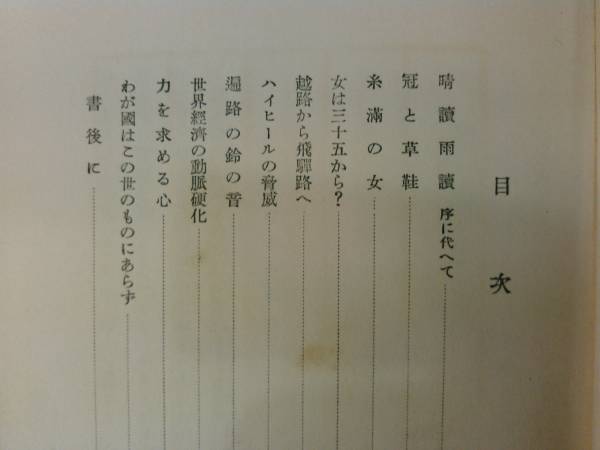 目次
晴讀雨讀 序に代へて
冠と草鞋
糸滿の女
女は三十五から？
越路から飛驒路へ
ハイヒールの脅威
遍路の鈴の音
世界經濟の動脈硬化
力を求める心
わが國はこの世のものにあらず
書後に